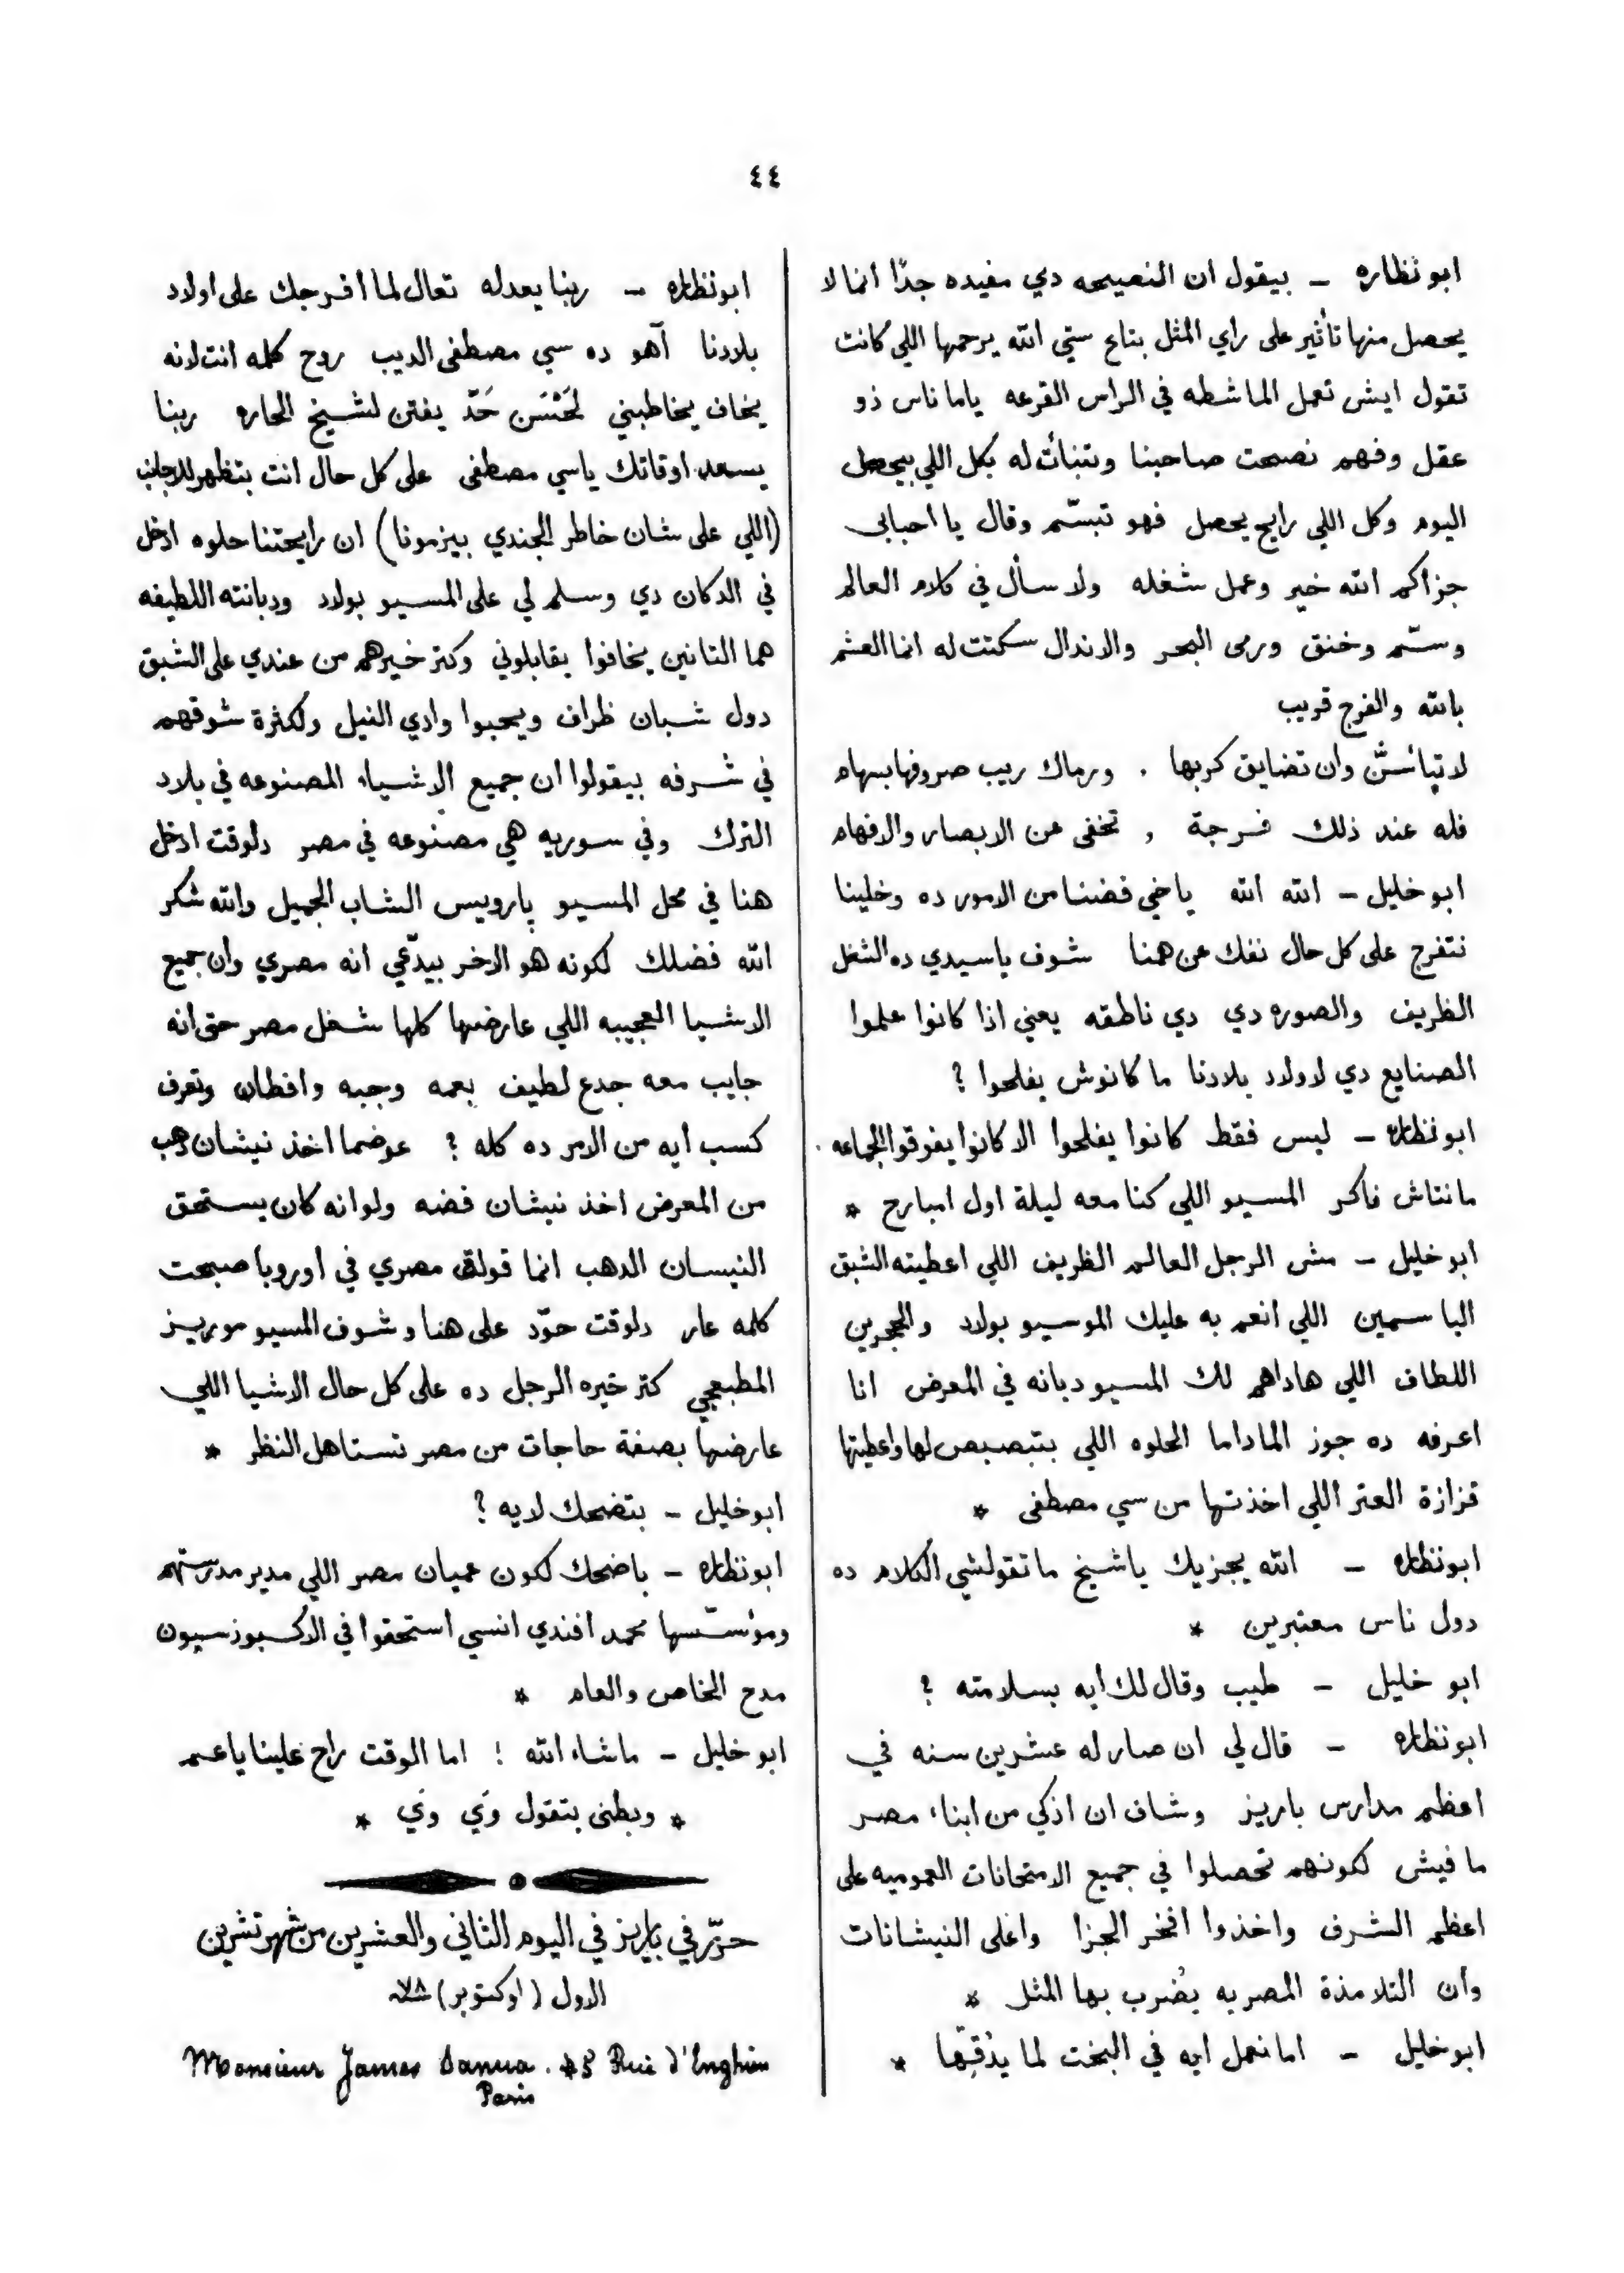 ٤٤
ابو نظاره – بيقول ان النصيحه دي مفيده جدًا انما لا
يحصل منها تأثير على راي المثل بتاع ستي الله يرحمها اللي كانت
تقول ايش تعمل الماشطه في الراس القرعه ياما ناس ذو
عقل وفهم نصحت صاحبنا وبتنبأت له بكل اللي بيحصل
اليوم وكل اللي رايح يحصل فهو تبسّم وقال يا احبابي
جزاكم الله خير وعمل شغله ولا سأل في كلام العالم
وسمّ وخنق ورمى البحر والاندال سكتت له انما العشم
بالله والفرج قريب
لا تيأسنّ وان تضايق كربها . ورماك ريب صروفها بسهام
فله عند ذلك فرجة , تخفى عن الابصار والافهام
ابو خليل – الله الله ياخي فضنا من الامور ده وخلينا
نتفرج على كل حال نفك عن همنا شوف ياسيدي ده الشغل
الظريف والصوره دي دي ناطقه يعني اذا كانوا علموا
الصنايع دي لاولاد بلادنا ما كانوش يفلحوا ؟
ابو نظاره – ليس فقط كانوا يفلحوا الا كانوا يفوقوا الجماعه .
مانتاش فاكر المسيو اللي كنا معه ليلة اول امبارح *
ابو خليل – مش الرجل العالم الظريف اللي اعطيته الشبق
الياسمين اللي انعم به عليك الموسيو بولاد والحجرين
اللطاف اللي هاداهم لك المسيو دبانه في المعرض انا
اعرفه ده جوز الماداما الحلوه اللي بتبصبص لها واعطيتها
قزازة العتر اللي اخذتها من سي مصطفى *
ابو نظاره – الله يجزيك ياشيخ ما تقولشي الكلام ده
دول ناس معتبرين *
ابو خليل – طيب وقال لك ايه بسلامته ؟
ابو نظاره – قال لي ان صار له عشرين سنه في
اعظم مدارس باريز وشاف ان اذكي من ابناء مصر
ما فيش لكونهم تحصلوا في جميع الامتحانات العموميه على
اعظم الشرف واخذوا افخر الجزا واغلى النيشانات
وان التلامذة المصريه يُضرب بها المثل *
ابو خليل – اما نعمل ايه في البخت لما يذقبّها *
ابو نظاره – ربنا يعدله تعال لما أفرجك على اولاد
بلادنا آهو ده سي مصطفى الديب روح كلمه انت لانه
يخاف يخاطبني لَحَسَن حَدّ يفتن لشيخ الحاره ربنا
يسعد اوقاتك ياسي مصطفى على كل حال انت بتظهر للاجانب
(اللي على شان خاطر الجندي بيزمونا) ان رايحتنا حلوه ادخل
في الدكان دي وسلم لي على المسيو بولاد ودبانته اللطيفه
هما التانين يخافوا يقابلوني وكتر خيرهم من عندي على الشبق
دول شبان ظراف ويحبوا وادي النيل ولكثرة شوقهم
في شرفه بيقولوا ان جميع الاشياء المصنوعه في بلاد
الترك وفي سوريه هي مصنوعه في مصر دلوقت ادخل
هنا في محل المسيو پارويس الشاب الجميل والله شكر
الله فضلك لكونه هو الاخر بيدّعي انه مصري وان جميع
الاشيا العجيبه اللي عارضها كلها شغل مصر حتى انه
جايب معه جدع لطيف بعمه وجبه وقفطان وتعرف
كسب ايه من الامر ده كله ؟ عوضما اخذ نيشان دهب
من المعرض اخذ نيشان فضه ولوانه كان يستحق
النيسان الدهب انما قولة مصري في اوروپا صبحت
كلمه عار دلوقت حوّد على هنا وشوف المسيو موريز
المطبعجي كتر خيره الرجل ده على كل حال الاشيا اللي
عارضها بصفة حاجات من مصر تستاهل النظر *
ابو خليل – بتضحك لايه ؟
ابو نظاره – باضحك لكون عميان مصر اللي مدير مدرستهم
ومؤسّسها محمد افندي انسي استحقوا في الاكسبوزسيون
مدح الخاص والعام *
ابو خليل – ماشاء الله ! اما الوقت راح علينا ياعم
* وبطني بتقول وَي وَي *
حرّر في باريز في اليوم الثاني والعشرين من شهر تشرين
الاول (اوكتوبر) ٧٨
Monsieur James Sanua. 48 Rue d'Enghien
Paris